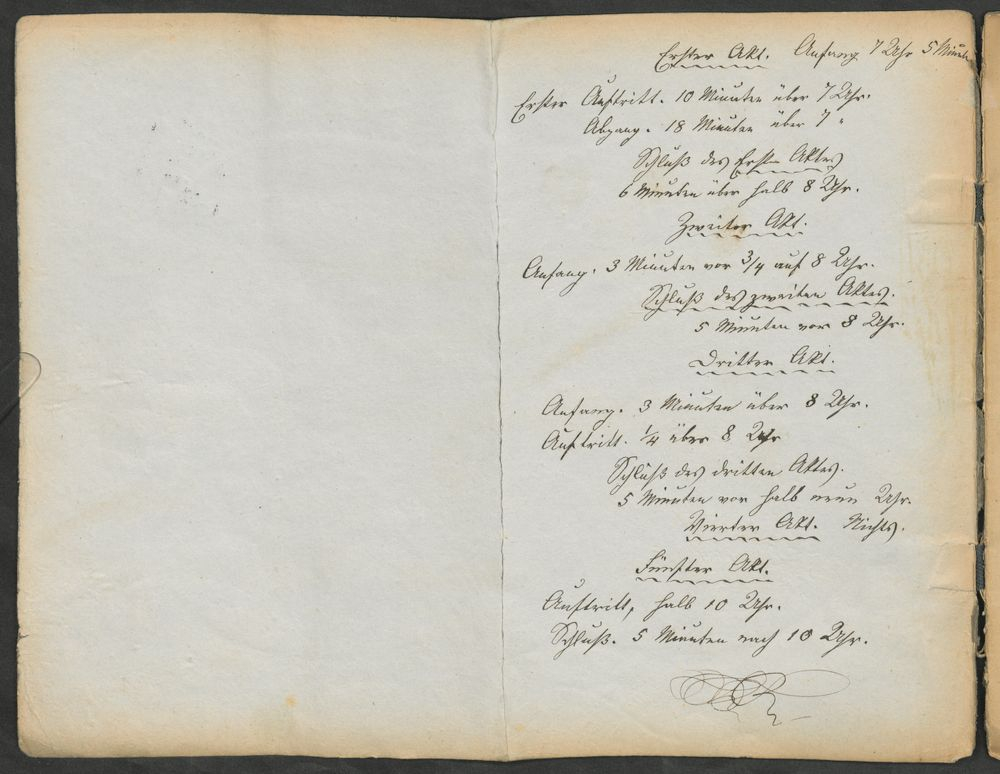 Erster Akt. Anfang 7 Uhr 5 Minuten
Erster Auftritt. 10 Minuten über 7 Uhr.
Abgang. 18 Minuten über 7 "
Schluß des Ersten Aktes
6 Minuten über halb 8 Uhr.
Zweiter Akt.
Anfang. 3 Minuten vor 3/4 auf 8 Uhr.
Schluß des zweiten Aktes.
5 Minuten vor 8 Uhr.
Dritter Akt.
Anfang. 3 Minuten über 8 Uhr.
Auftritt. 1/4 über 8 Uhr
Schluß des dritten Aktes.
5 Minuten vor halb neun Uhr.
Vierter Akt. Nichts.
Fünfter Akt.
Auftritt, halb 10 Uhr.
Schluß. 5 Minuten nach 10 Uhr.